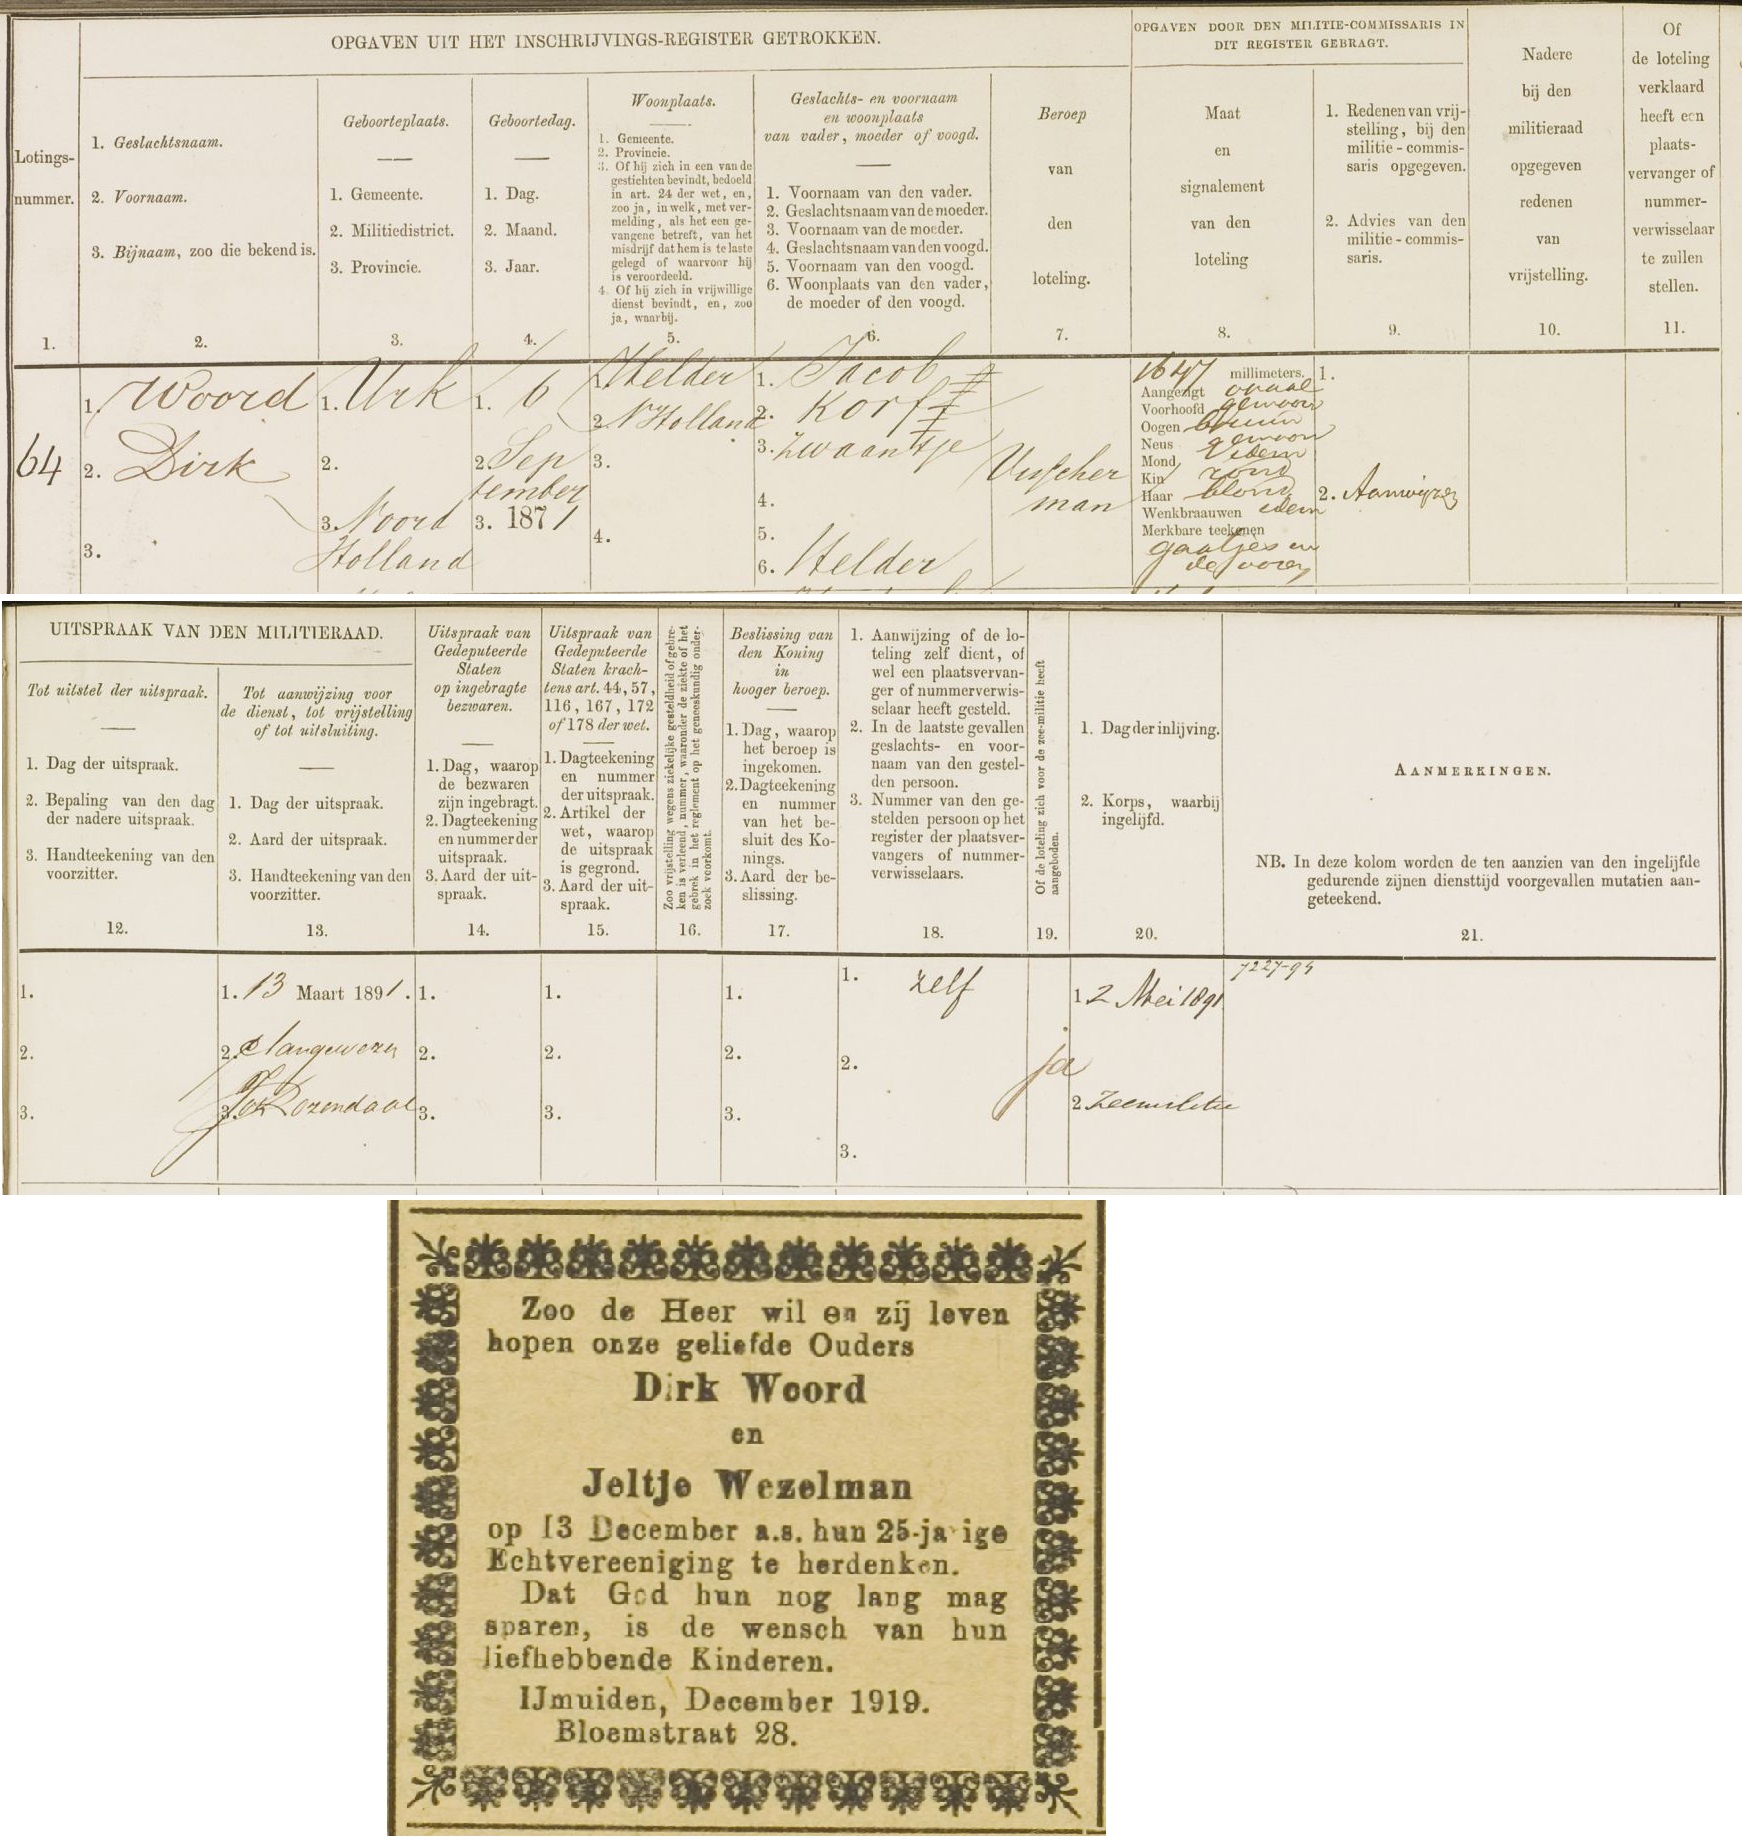 OPGAVEN UIT HET INSCHRIJVINGS-REGISTER GETROKKEN.
OPGAVEN DOOR DEN MILITIE-COMMISSARIS IN
DIT REGISTER GEBRAGT.
Lotings-
nummer.
1.
1. Geslachtsnaam.
2. Voornaam.
3. Bijnaam, zoo die bekend is.
2.
Geboorteplaats.
1. Gemeente.
2. Militiedistrict.
3. Provincie.
3.
Geboortedag.
1. Dag.
2. Maand.
3. Jaar.
4.
Woonplaats.
1. Gemeente.
2. Provincie.
3. Of hij zich in een van de
gestichten bevindt, bedoeld
in art. 24 der wet, en,
zoo ja, in welk, met ver-
melding, als het een ge-
vangene betreft, van het
misdrijf dat hem is te laste
gelegd of waarvoor hij
is veroordeeld.
4. Of hij zich in vrijwillige
dienst bevindt, en, zoo
ja, waarbij.
5.
Geslachts- en voornaam
en woonplaats
van vader, moeder of voogd.
1. Voornaam van den vader.
2. Geslachtsnaam van de moeder.
3. Voornaam van de moeder.
4. Geslachtsnaam van den voogd.
5. Voornaam van den voogd.
6. Woonplaats van den vader,
de moeder of den voogd.
6.
Beroep
van
den
loteling.
7.
Maat
en
signalement
van den
loteling
8.
1. Redenen van vrij-
stelling, bij den
militie-commis-
saris opgegeven.
2. Advies van den
militie-commis-
saris.
9.
Nadere
bij den
militieraad
opgegeven
redenen
van
vrijstelling.
10.
Of
de loteling
verklaard
heeft een
plaats-
vervanger of
nummer-
verwisselaar
te zullen
stellen.
11.
64
1. Woord
2. Dirk
3.
1. Urk
2.
3. Noord
Holland
1. 6
2. Sep
tember
3. 1871
1. Helder
2. N Holland
3.
4.
1. Jacob
2. Korf
3. Zwaantje
4.
5.
6. Helder
Visscher
man
1647 millimeters.
Aangezigt ovaal
Voorhoofd gewoon
Oogen bruin
Neus gewoon
Mond idem
Kin rond
Haar blond
Wenkbraauwen idem
Merkbare teekenen
gaatjes in
de ooren
1.
2. Aanwijzen
UITSPRAAK VAN DEN MILITIERAAD.
Tot uitstel der uitspraak.
1. Dag der uitspraak.
2. Bepaling van den dag
der nadere uitspraak.
3. Handteekening van den
voorzitter.
12.
Tot aanwijzing voor
de dienst, tot vrijstelling
of tot uitsluiting.
1. Dag der uitspraak.
2. Aard der uitspraak.
3. Handteekening van den
voorzitter.
13.
Uitspraak van
Gedeputeerde
Staten
op ingebragte
bezwaren.
1. Dag, waarop
de bezwaren
zijn ingebragt.
2. Dagteekening
en nummer der
uitspraak.
3. Aard der uit-
spraak.
14.
Uitspraak van
Gedeputeerde
Staten krach-
tens art. 44, 57,
116, 167, 172
of 178 der wet.
1. Dagteekening
en nummer
der uitspraak.
2. Artikel der
wet, waarop
de uitspraak
is gegrond.
3. Aard der uit-
spraak.
15.
Zoo vrijstelling wegens ziekelijke gesteldheid of gebre-
ken is verleend, nummer, waaronder de ziekte of het
gebrek in het reglement op het geneeskundig onder-
zoek voorkomt.
16.
Beslissing van
den Koning
in
hooger beroep.
1. Dag, waarop
het beroep is
ingekomen.
2. Dagteekening
en nummer
van het be-
sluit des Ko-
nings.
3. Aard der be-
slissing.
17.
1. Aanwijzing of de lo-
teling zelf dient, of
wel een plaatsvervan-
ger of nummerverwis-
selaar heeft gesteld.
2. In de laatste gevallen
geslachts- en voor-
naam van den gestel-
den persoon.
3. Nummer van den ge-
stelden persoon op het
register der plaatsver-
vangers of nummer-
verwisselaars.
18.
Of de loteling zich voor de zee-militie heeft
aangeboden.
19.
1. Dag der inlijving.
2. Korps, waarbij
ingelijfd.
20.
AANMERKINGEN.
NB. In deze kolom worden de ten aanzien van den ingelijfde
gedurende zijnen diensttijd voorgevallen mutatien aan-
geteekend.
21.
1.
2.
3.
1. 13 Maart 1891.
2. Aangewezen
3. Rozendaal
1.
2.
3.
1.
2.
3.
1.
2.
3.
1. zelf
2.
3.
ja
1 2 Mei 1891
2 Zeemilitie
Zoo de Heer wil en zij leven
hopen onze geliefde Ouders
Dirk Woord
en
Jeltje Wezelman
op 13 December a.s. hun 25-jarige
Echtvereeniging te herdenken.
Dat God hun nog lang mag
sparen, is de wensch van hun
liefhebbende Kinderen.
IJmuiden, December 1919.
Bloemstraat 28.